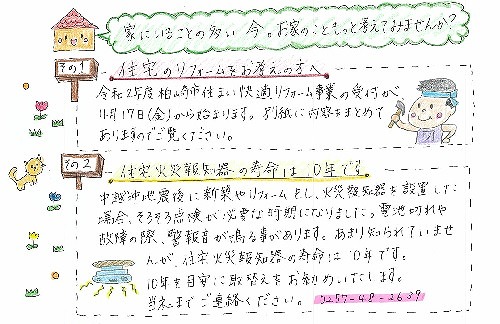 家にいることの多い今。お家のこともっと考えてみませんか?
その1
住宅のリフォームをお考えの方へ
令和2年度柏崎市住まい快適リフォーム事業の受付が
4月17日(金)から始まります。別紙に内容をまとめて
ありますのでご覧ください。
その2
住宅火災報知器の寿命は10年です
中越沖地震後に新築やリフォームをし、火災報知器を設置した
場合、そろそろ点検が必要な時期になりました。電池切れや
故障の際、警報音が鳴る事があります。あまり知られていませ
んが、住宅火災報知器の寿命は10年です。
10年を目安に取替えをお勧めいたします。
当社までご連絡ください。 0257-48-2639